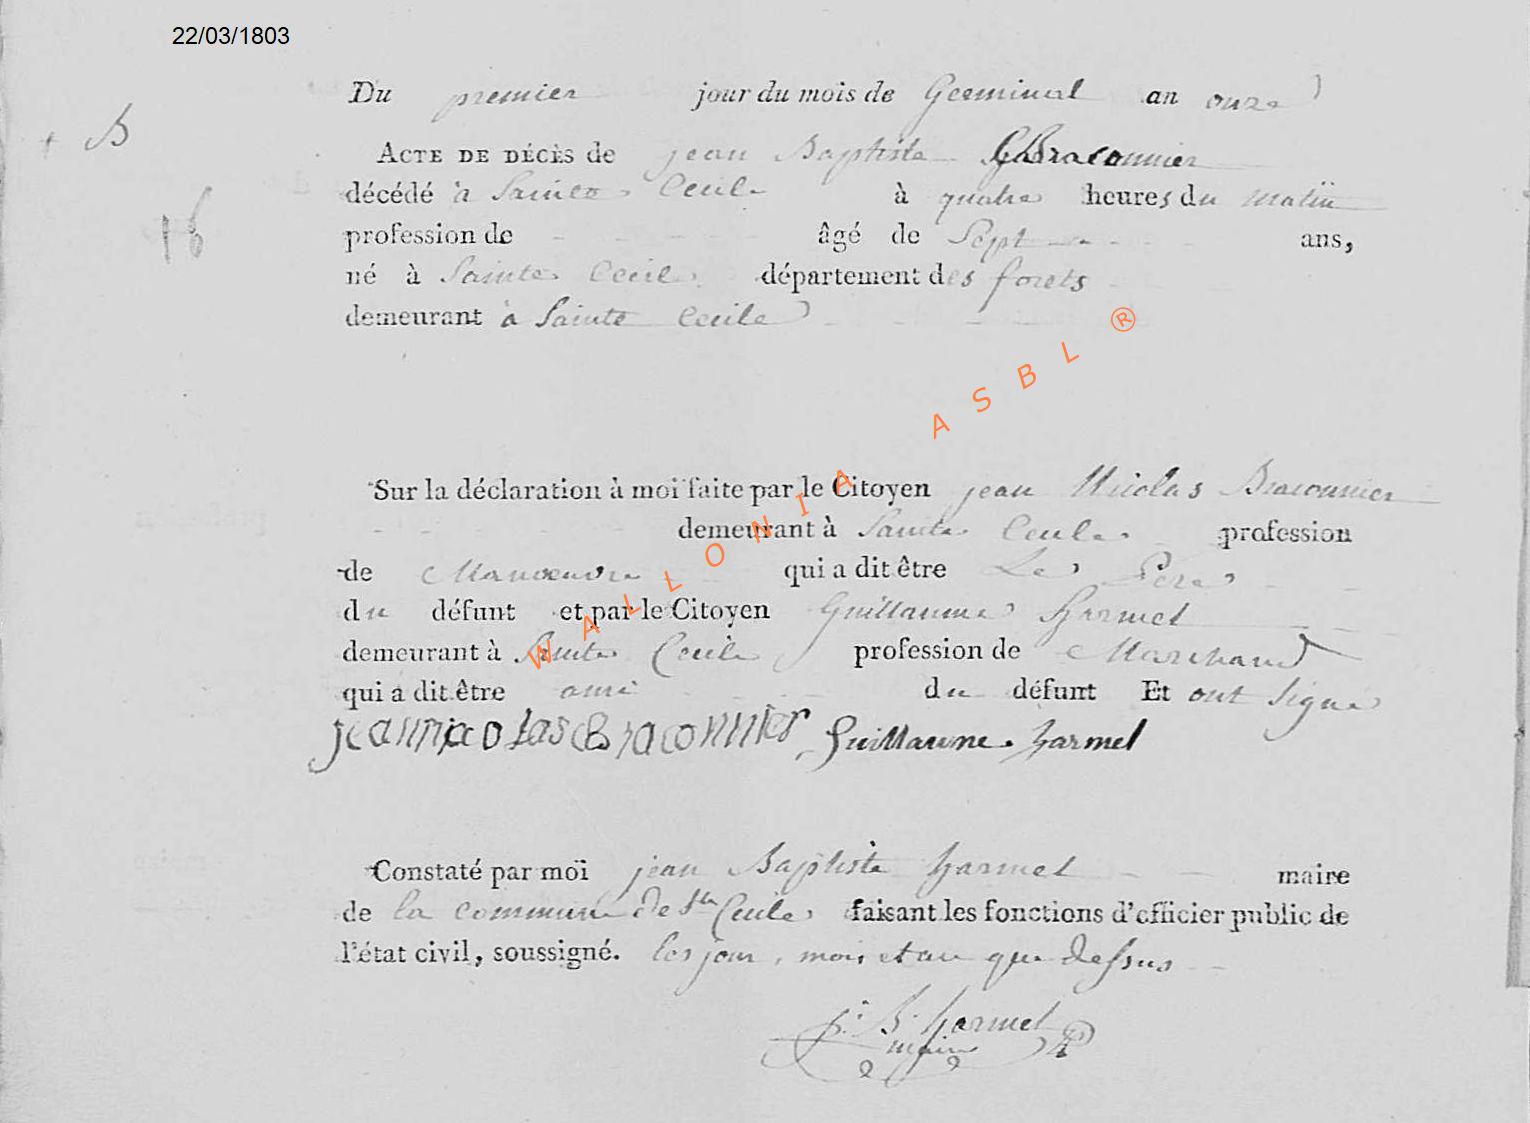 22/03/1803
Du premier jour du mois de Germinal an onze
+ B
ACTE DE DÉCÈS de jean Baptiste Braconnier
décédé à Sainte Cecile à quatre heures du matin
16
profession de - - - âgé de Sept - - - ans,
né à Sainte Cecile département des forets
demeurant à Sainte Cecile
WALLONIA ASBL ®
Sur la déclaration à moi faite par le Citoyen jean Nicolas Braconnier
demeurant à Sainte Cecile profession
de Manoeuvre qui a dit être Le Pere
du défunt et par le Citoyen Guillaume harmel
demeurant à Sainte Cecile profession de Marchand
qui a dit être ami du défunt Et ont signé
jean nicolas Braconnier Guillaume harmel
Constaté par moi jean Baptiste harmel maire
de la commune de Ste Cecile faisant les fonctions d'officier public de
l'état civil, soussigné. les jour, mois et an que dessus
j. B. harmel
maire